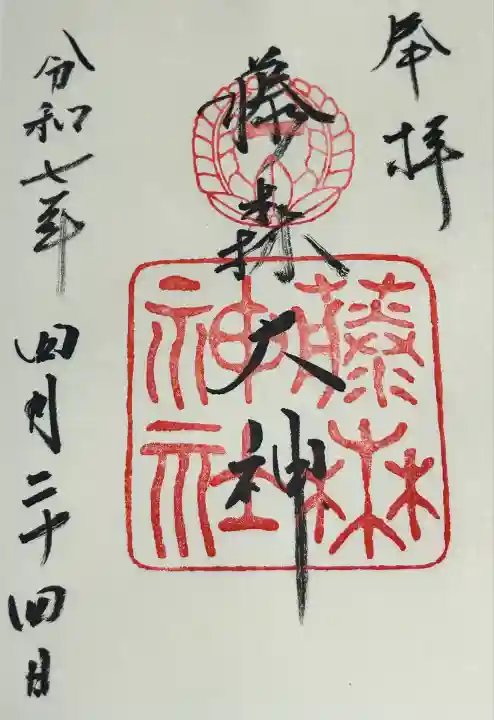 奉拝
藤森大神
藤森神社
令和七年 四月二十四日